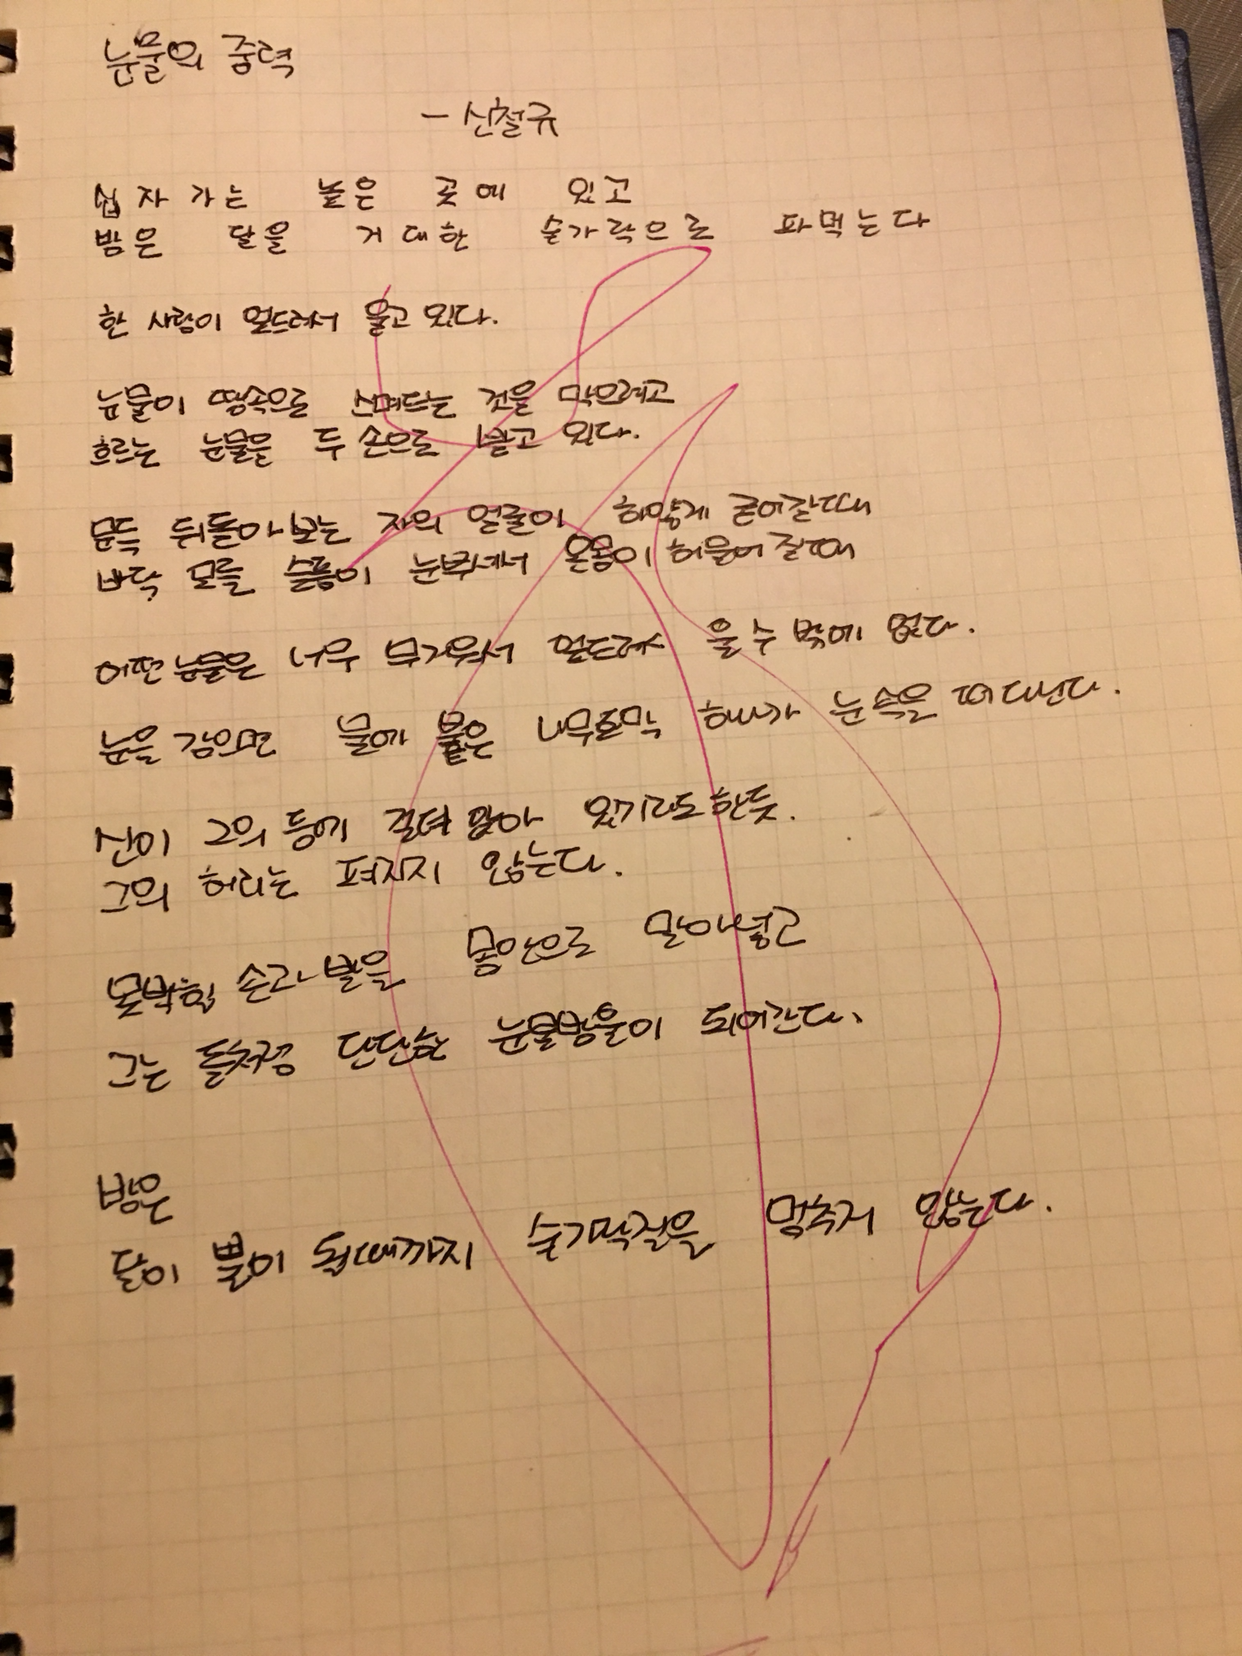 눈물의 중력
- 신철규
십자가는 높은 곳에 있고
밤은 달을 거대한 숟가락으로 파먹는다
한 사람이 엎드려서 울고 있다.
눈물이 땅속으로 스며드는 것을 막으려고
흐르는 눈물을 두 손으로 받고 있다.
문득 뒤돌아보는 자의 얼굴이 하얗게 굳어갈 때
바닥 모를 슬픔이 눈부셔서 온몸이 허물어질 때
어떤 눈물은 너무 무거워서 엎드려서 울 수 밖에 없다.
눈을 감으면 물에 불은 나무토막 하나가 눈 속을 떠다닌다.
신이 그의 등에 걸터 앉아 있기라도 한듯.
그의 허리는 펴지지 않는다.
못박힌 손과 발을 몸안으로 말아넣고
그는 돌처럼 단단한 눈물방울이 되어간다.
밤은
달이 뿔이 될때까지 숟가락질을 멈추지 않는다.